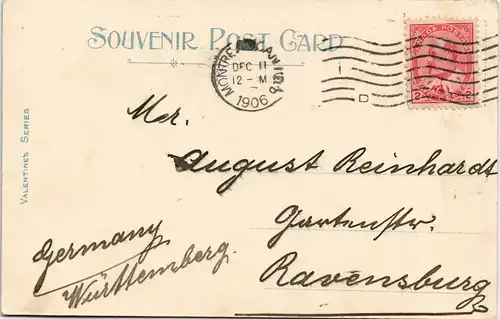 SOUVENIR POST CARD
MONTREAL CANADA
DEC 11
12-M
1906
D
CANADA POSTAGE
2 2
VALENTINE'S SERIES
Mr.
August Reinhardt
Gartenstr.
Ravensburg
Germany
Württemberg.